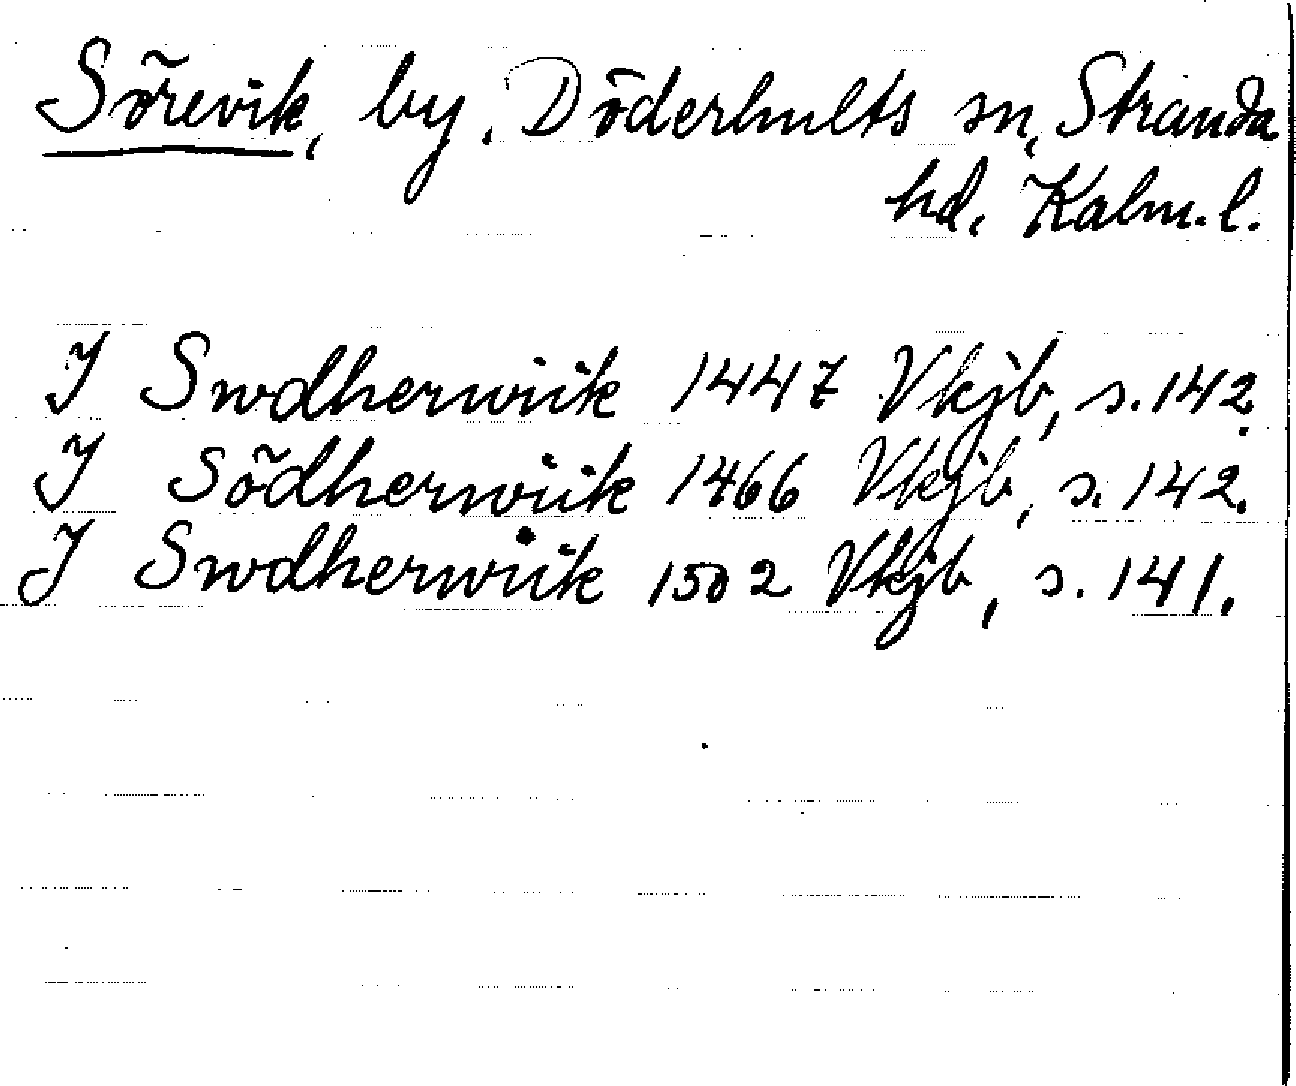 Sörevik, by. Döderhults sn, Stranda
hd. Kalm. l.
J Swdherwiik 1447 Vkjb, s. 142.
J Södherwiik 1466 Vkjb, s. 142.
J Swdherwiik 1502 Vkjb, s. 141.